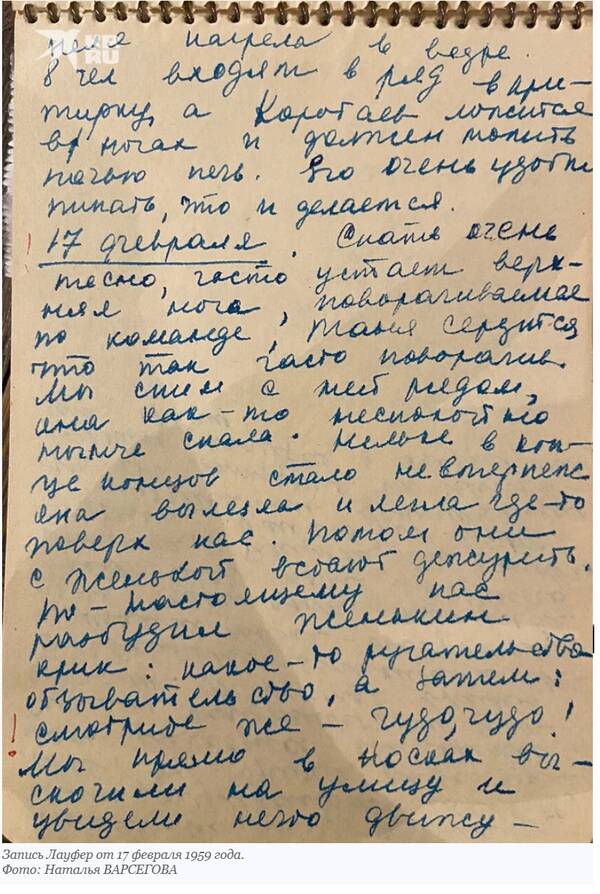 KP.RU
нагрела в ведре.
8 чел входят в ряд в при-
тирку, а Коротаев ложится
в ногах и должен топить
ночью печь. Его очень удобн
пинать, что и делается.
17 февраля. Спать очень
тесно, часто устает верх-
няя нога, поворачиваемся
по команде, Таня сердится,
что так часто поворачив.
Мы спим с ней рядом,
она как-то неспокойно
нынче спала. Нельке в кон-
це концов стало невтерпеж
она вылезла и легла где-то
поверх нас. Потом они
с Женькой встают дежурить.
По-настоящему нас
разбудил Женькин
крик: какое-то ругательство
обзывательство, а затем:
смотрите же - чудо, чудо!
Мы прямо в носках вы-
скочили на улицу и
увидели нечто движу-
Запись Лауфер от 17 февраля 1959 года.
Фото: Наталья ВАРСЕГОВА